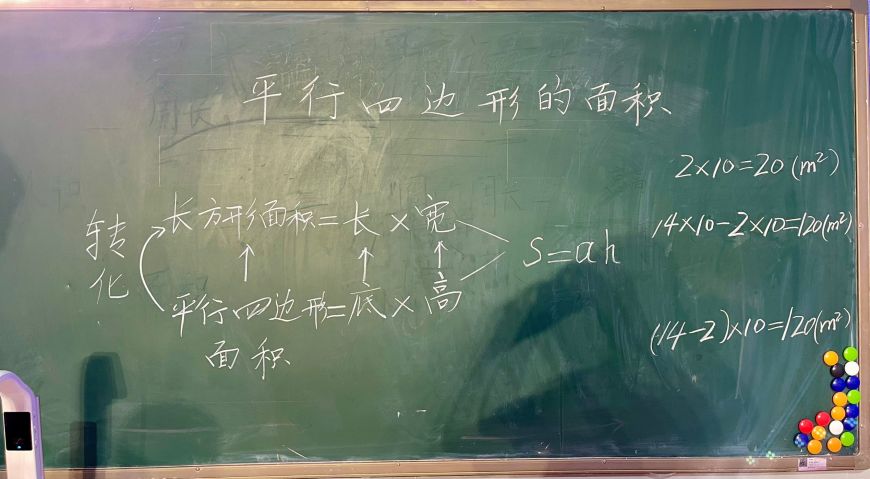 平行四边形的面积
2×10=20(m²)
14×10-2×10=120(m²)
(14-2)×10=120(m²)
转化
长方形面积=长×宽
平行四边形=底×高
面积
S=ah